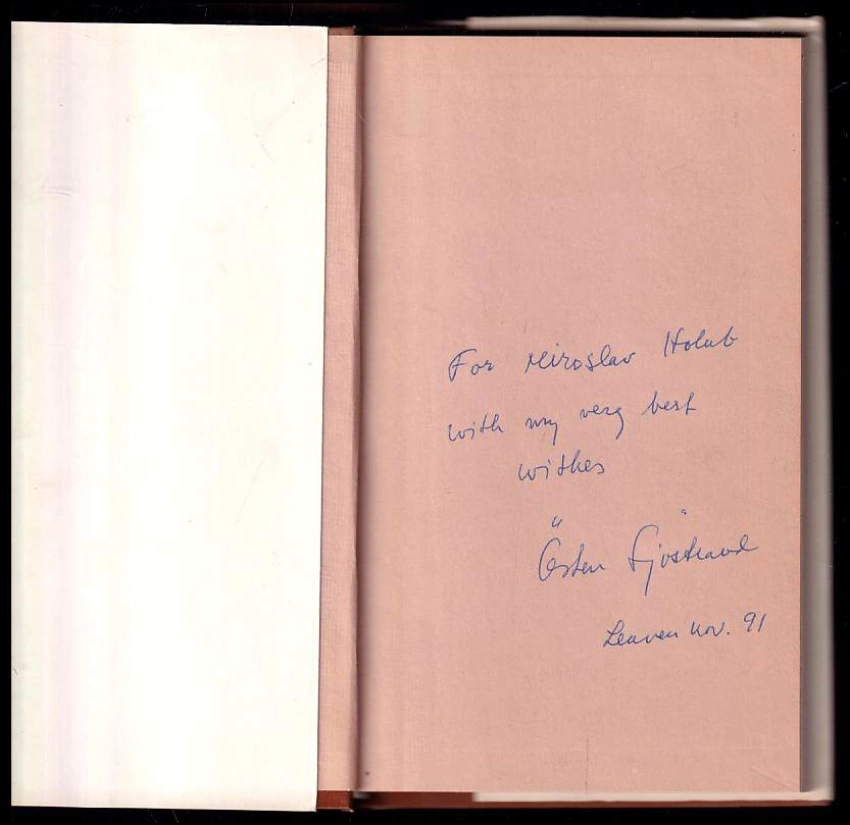 For Miroslav Holub
with my very best
wishes
Östen Sjöstrand
Leuven nov. 91